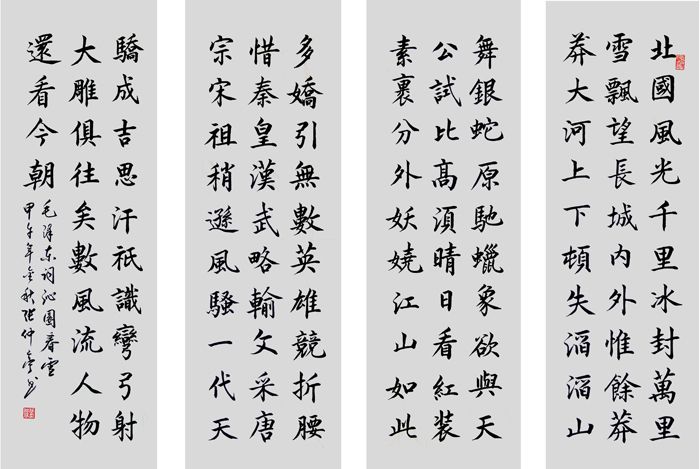 北國風光千里冰封萬里
雪飄望長城內外惟餘莽
莽大河上下頓失滔滔山
舞銀蛇原馳蠟象欲與天
公試比高湏晴日看紅装
素裹分外妖嬈江山如此
多嬌引無數英雄競折腰
惜秦皇漢武略輸文采唐
宗宋祖稍遜風騷一代天
驕成吉思汗祇識彎弓射
大雕俱往矣數風流人物
還看今朝
毛泽东词沁園春雪
甲午年金秋张仲亭书